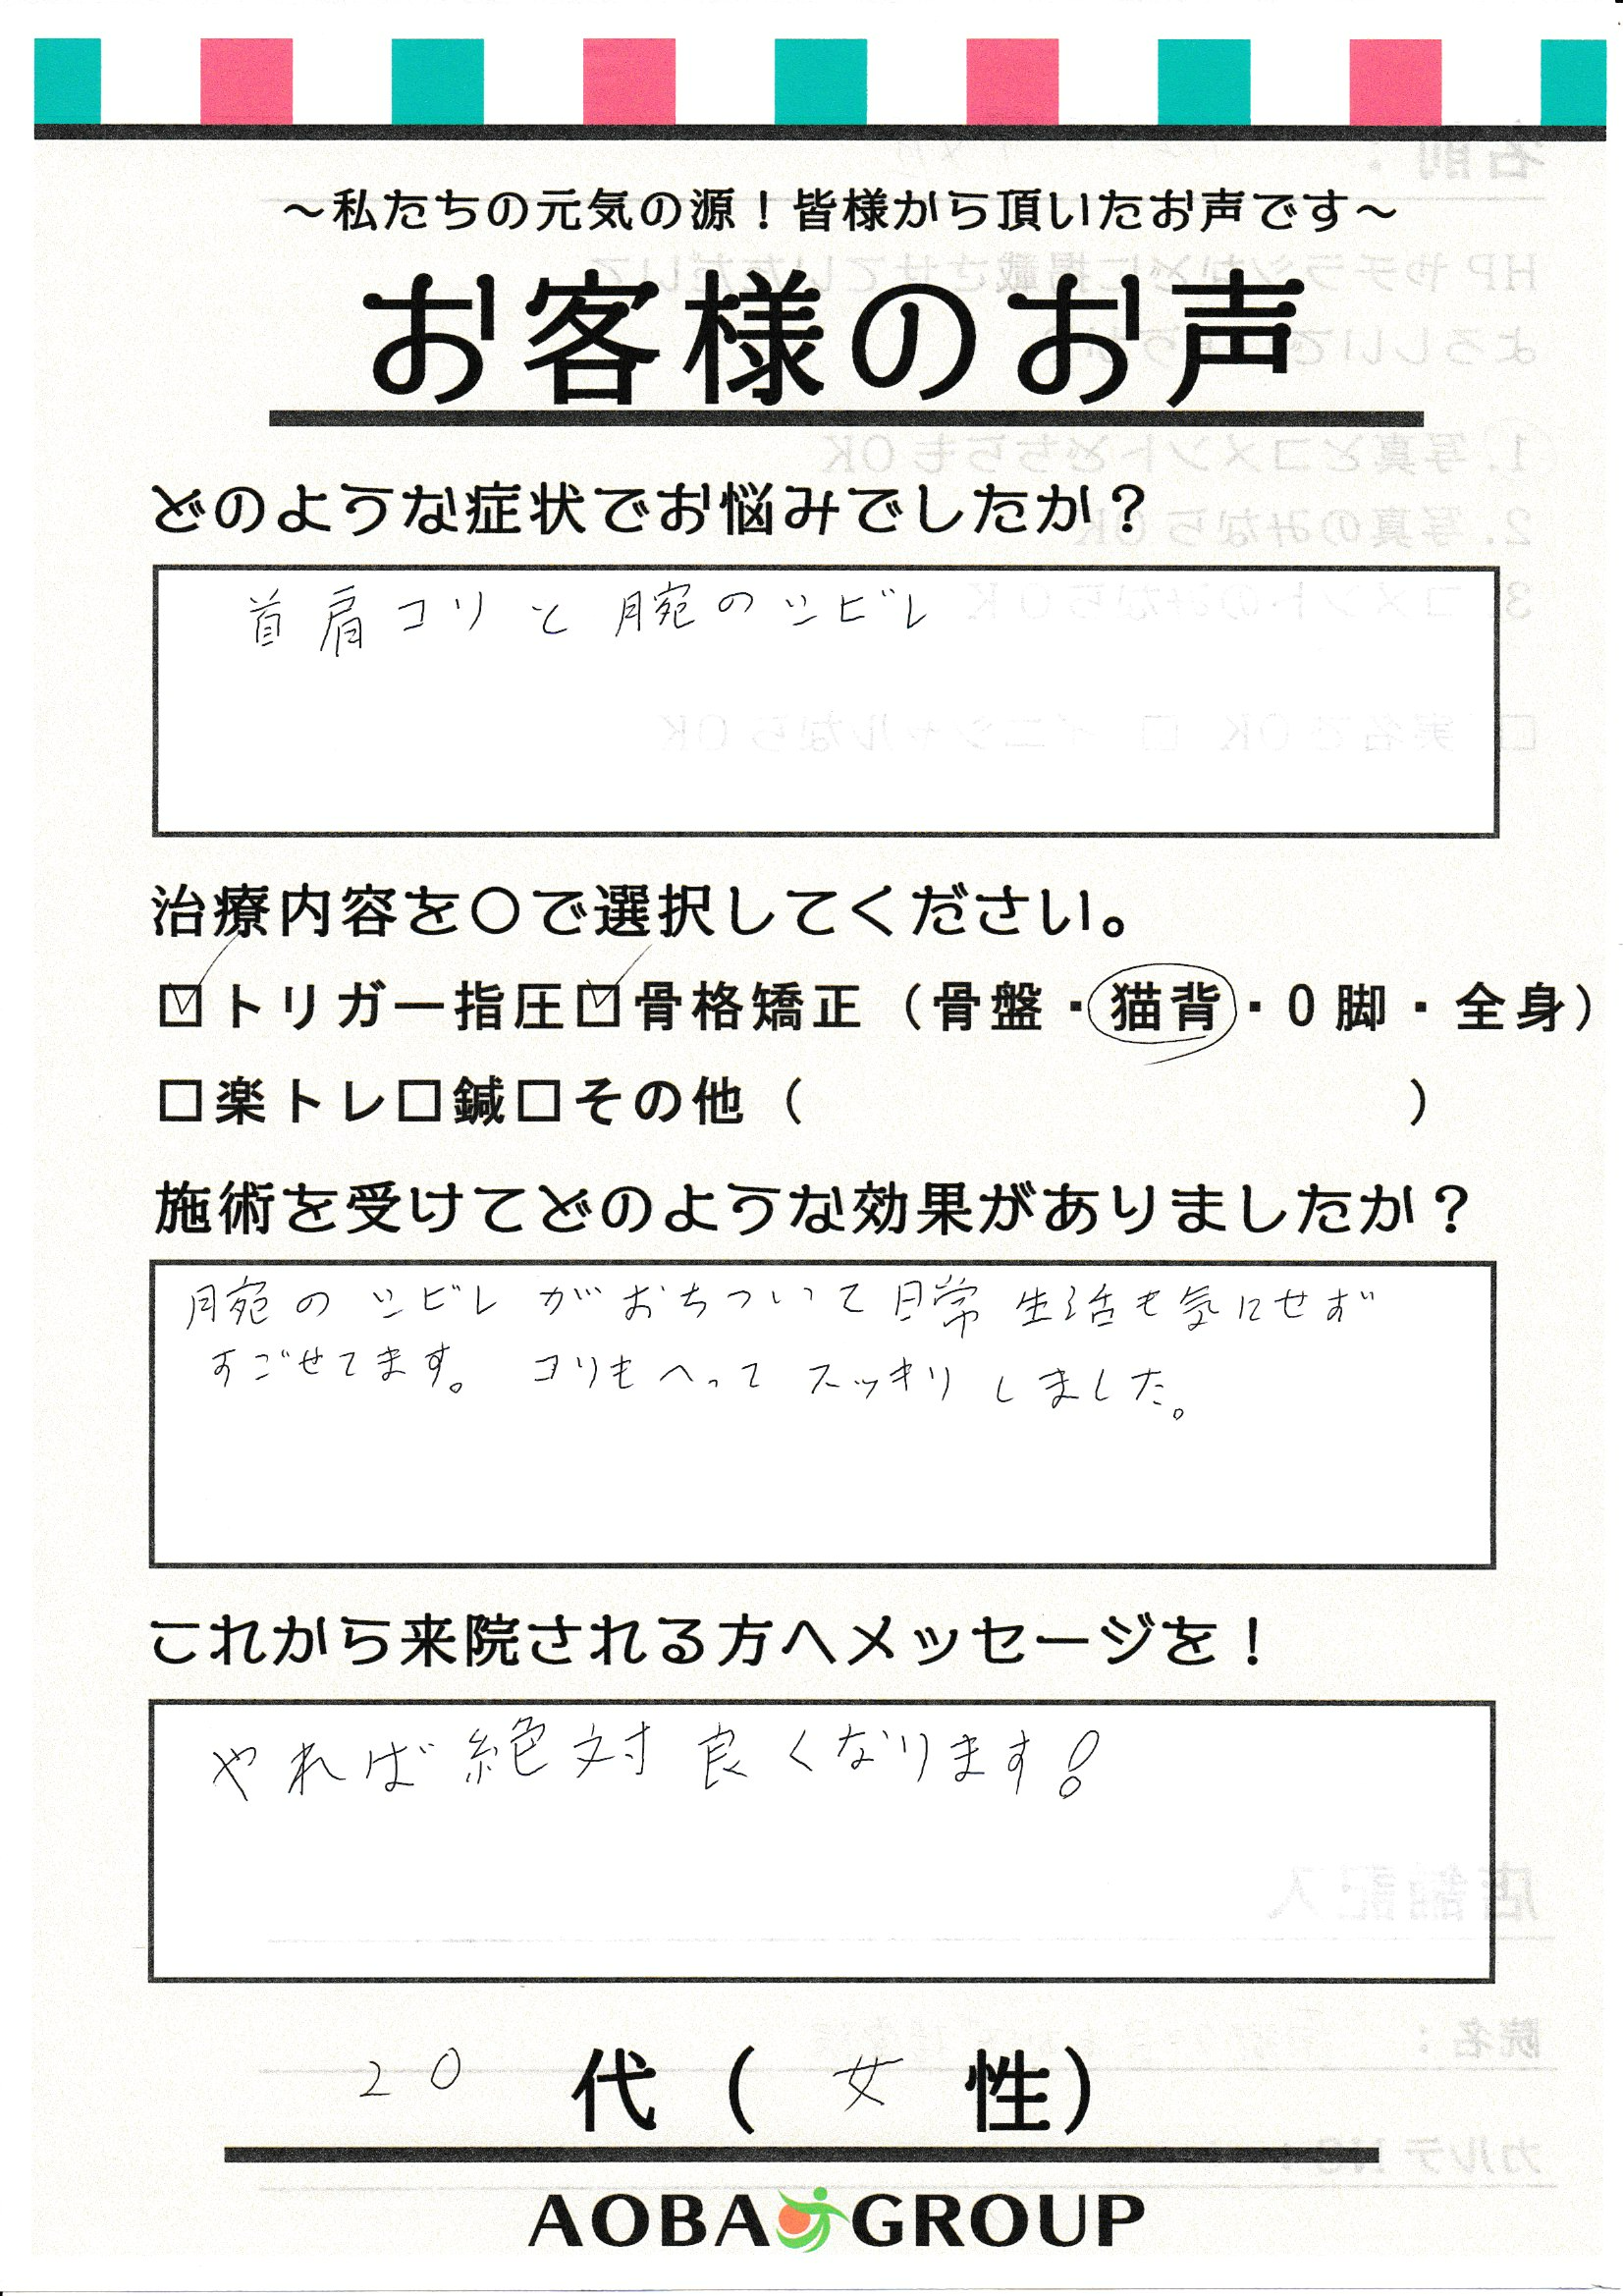 ～私たちの元気の源！皆様から頂いたお声です～
お客様のお声
どのような症状でお悩みでしたか？
首肩コリと腕のシビレ
治療内容を〇で選択してください。
☑トリガー指圧☑骨格矯正（骨盤・猫背・O脚・全身）
□楽トレ□鍼□その他（　　　　　　　　　　）
施術を受けてどのような効果がありましたか？
腕のシビレがおちついて日常生活も気にせず
すごせてます。コリもへってスッキリしました。
これから来院される方へメッセージを！
やれば絶対良くなります！
20代（女性）
AOBA GROUP